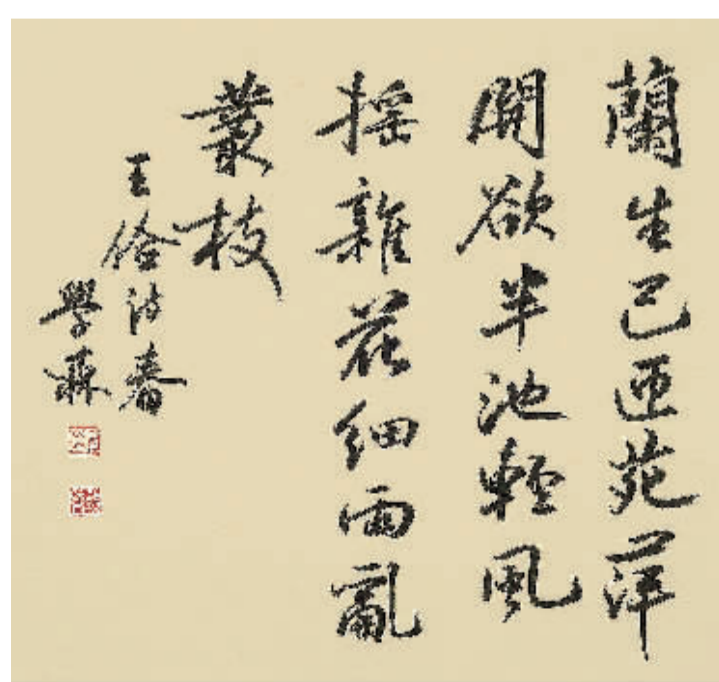 蘭生已匝苑萍
開欲半池輕風
搖雜花細雨亂
叢枝
王儉詩春
學